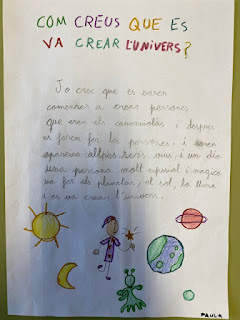 COM CREUS QUE ES
VA CREAR L'UNIVERS?
Jo crec que es varen
començar a crear persones
que eren els cavernícoles i despues
es faren fer les persones. i varen
apareixe altres sers vius i un dia
una persona molt especial i magica
va fer els planetas, el sol, la lluna
i es va crear l'univers.
PAULA